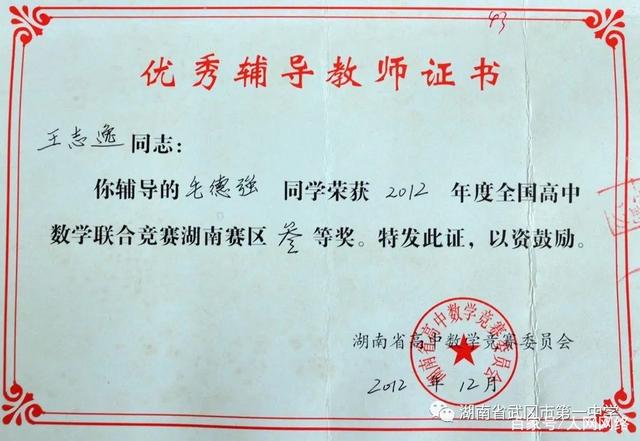 43
优秀辅导教师证书
王志逸同志：
你辅导的毛德强 同学荣获 2012 年度全国高中
数学联合竞赛湖南赛区 叁 等奖。特发此证，以资鼓励。
湖南省高中数学竞赛委员会
湖南省高中数学竞赛委员会
2012 年 12月
湖南省武冈市第一中学
百家号/人网网络